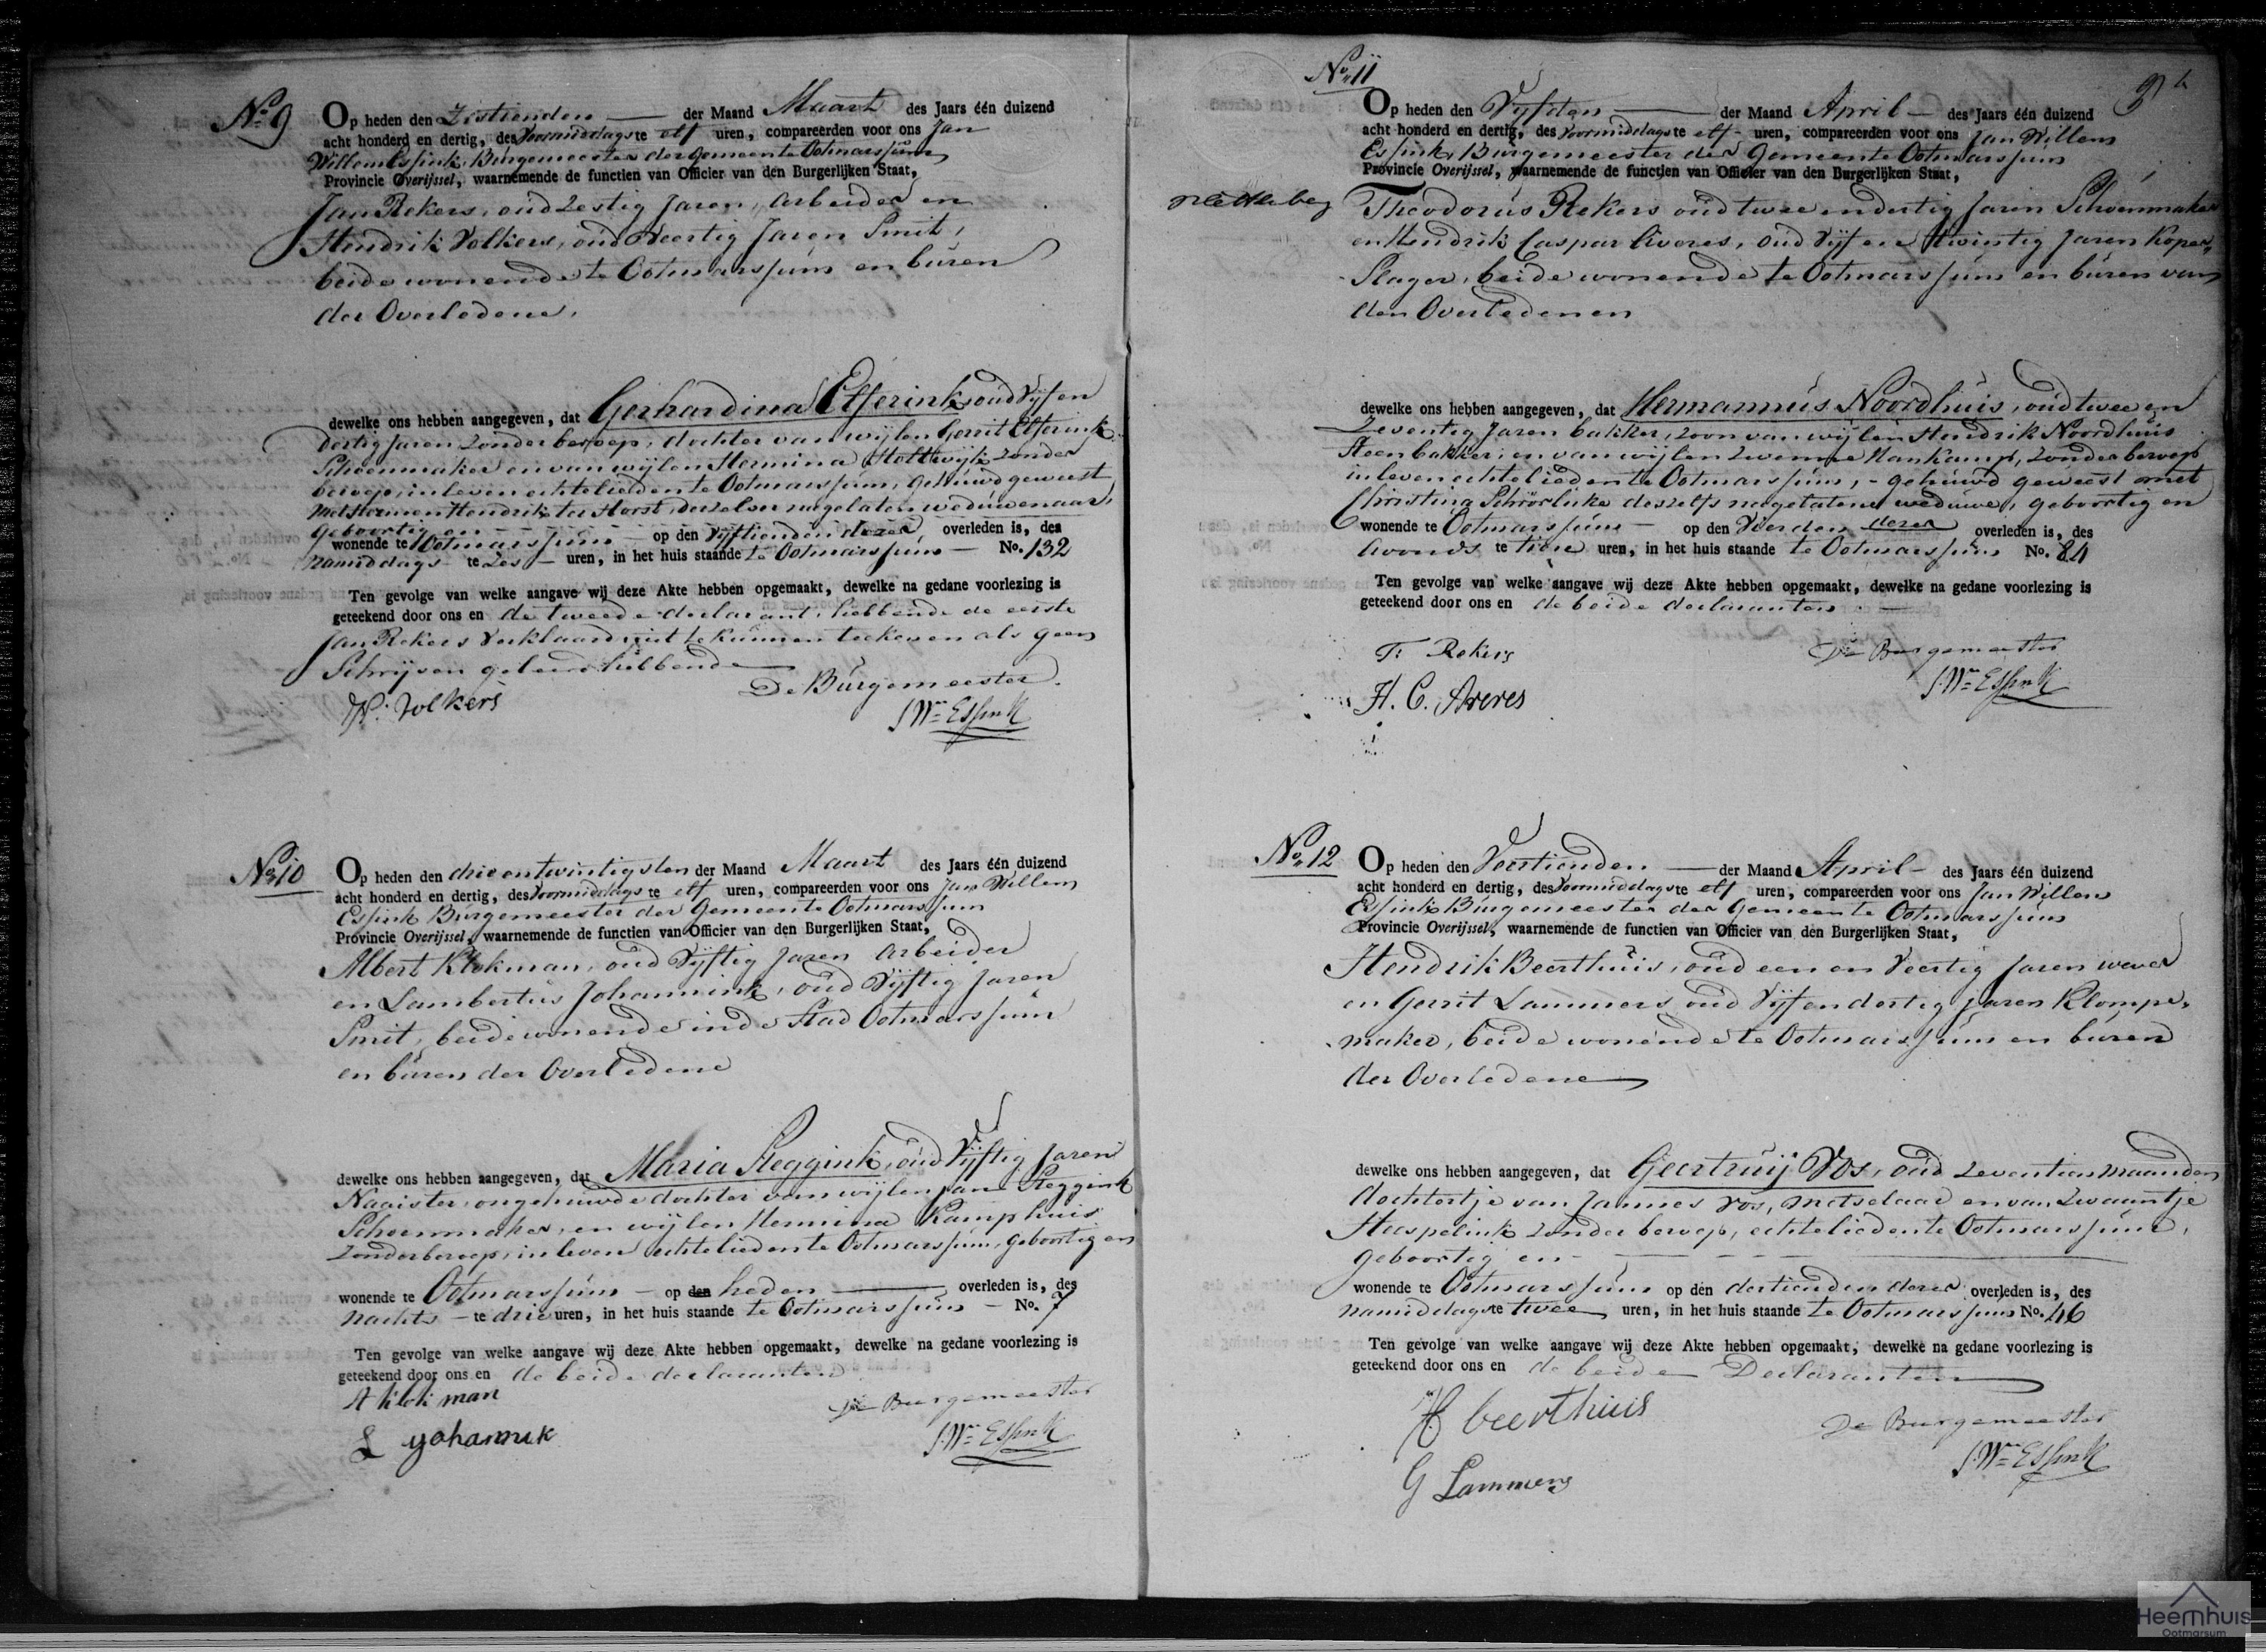 No 9
Op heden den Zestienden der Maand Maart des Jaars één duizend
acht honderd en dertig, des Voormiddags te elf uren, compareerden voor ons Jan
Willem Essink, Burgemeester der Gemeente Ootmarssum
Provincie Overijssel, waarnemende de functien van Officier van den Burgerlijken Staat,
Jan Rekers, oud Zestig Jaren, Arbeider en
Hendrik Volkers, oud Veertig Jaren Smit,
beide wonende te Ootmarssum en buren
der Overledene,
dewelke ons hebben aangegeven, dat Gerhardina Elferink, oud Vijf en
dertig Jaren zonder beroep, dochter van wijlen Gerrit Elferink
Schoenmaker en van wijlen Hermina Holtwijk zonder
beroep, in leven echtelieden te Ootmarssum, gehuwd geweest
met Hermen Hendrik ter Horst, derzelver nagelaten weduwenaar,
geboortig en
wonende te Ootmarssum op den Vijftienden dezer overleden is, des
namiddags te Zes uren, in het huis staande te Ootmarssum No. 132
Ten gevolge van welke aangave wij deze Akte hebben opgemaakt, dewelke na gedane voorlezing is
geteekend door ons en de tweede declarant, hebbende de eerste
Jan Rekers verklaard niet te kunnen teekenen als geen
Schrijven geleerd hebbende
De Burgemeester
H. Volkers
J Wm Essink
No 10
Op heden den drie en twintigsten der Maand Maart des Jaars één duizend
acht honderd en dertig, des Voormiddags te elf uren, compareerden voor ons Jan Willem
Essink Burgemeester der Gemeente Ootmarssum
Provincie Overijssel, waarnemende de functien van Officier van den Burgerlijken Staat,
Albert Klokman, oud Vijftig Jaren Arbeider
en Lambertus Johannink, oud Vijftig Jaren
Smit, beide wonende in de Stad Ootmarssum
en buren der Overledene
dewelke ons hebben aangegeven, dat Maria Steggink, oud Vijftig Jaren
Naaister, ongehuwde dochter van wijlen Jan Steggink
Schoenmaker, en wijlen Hermina Kamphuis
zonder beroep, in leven echtelieden te Ootmarssum, geboortig en
wonende te Ootmarssum op den heden overleden is, des
nachts te drie uren, in het huis staande te Ootmarssum No. 7
Ten gevolge van welke aangave wij deze Akte hebben opgemaakt, dewelke na gedane voorlezing is
geteekend door ons en de beide declaranten
A klokman
De Burgemeester
L Johannink
J. Wm Essink
No 11
Op heden den Vijfden der Maand April des Jaars één duizend
acht honderd en dertig, des Voormiddags te elf uren, compareerden voor ons Jan Willem
Essink, Burgemeester der Gemeente Ootmarssum
Provincie Overijssel, waarnemende de functien van Officier van den Burgerlijken Staat,
Theodorus Rekers oud twee en dertig Jaren Schoenmaker
en Hendrik Caspar Averes, oud Vijf en twintig Jaren Koper
Slager, beide wonende te Ootmarssum en buren van
den Overledenen
dewelke ons hebben aangegeven, dat Hermannus Noordhuis, oud twee en
Zeventig Jaren bakker, zoon van wijlen Hendrik Noordhuis
Steenbakker, en van wijlen Zwenne Hankamp, zonder beroep
in leven echtelieden te Ootmarssum, gehuwd geweest met
Christina Schrörlüke deszelfs nagelatene weduwe, geboortig en
wonende te Ootmarssum op den Vierden dezer overleden is, des
avonds te tien uren, in het huis staande te Ootmarssum No. 84
Ten gevolge van welke aangave wij deze Akte hebben opgemaakt, dewelke na gedane voorlezing is
geteekend door ons en de beide declaranten
T: Rekers
De Burgemeester
H. C. Averes
J. Wm Essink
No 12
Op heden den Veertienden der Maand April des Jaars één duizend
acht honderd en dertig, des Voormiddags te elf uren, compareerden voor ons Jan Willem
Essink Burgemeester der Gemeente Ootmarssum
Provincie Overijssel, waarnemende de functien van Officier van den Burgerlijken Staat,
Hendrik Beerthuis, oud een en Veertig Jaren wever
en Gerrit Lammers oud Vijf en dertig Jaren Klompe-
maker, beide wonende te Ootmarssum en buren
der Overledene
dewelke ons hebben aangegeven, dat Geertruij Vos, oud zeventien maanden
dochtertje van Jannes Vos, metselaar en van Zwaantje
Haspelink zonder beroep, echtelieden te Ootmarssum,
geboortig en
wonende te Ootmarssum op den dertienden dezer overleden is, des
namiddags te twee uren, in het huis staande te Ootmarssum No. 46
Ten gevolge van welke aangave wij deze Akte hebben opgemaakt, dewelke na gedane voorlezing is
geteekend door ons en de beide Declaranten
H beerthuis
De Burgemeester
G Lammers
J. Wm Essink
Heemhuis
Ootmarsum